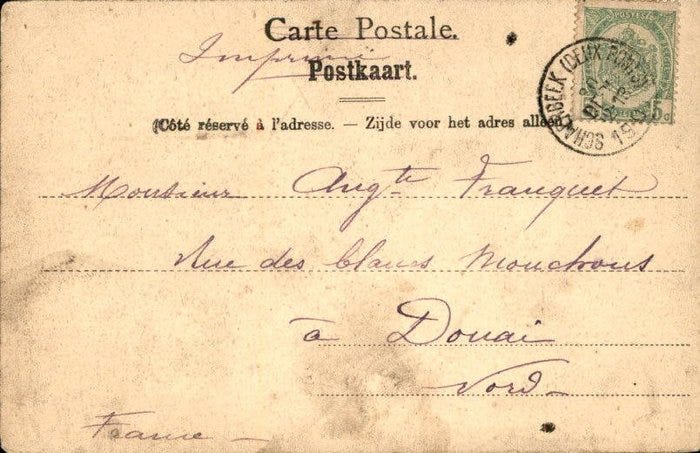 Carte Postale.
Imprimé
Postkaart.
(Côté réservé à l'adresse. — Zijde voor het adres alleen.)
SCHAERBEEK (DEUX PONTS)
5c
Monsieur Augte Franquet
Rue des blancs Mouchons
à Douai
Nord
France